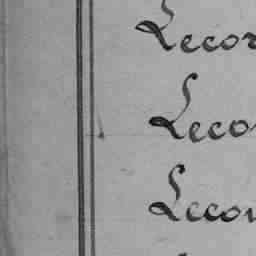 Lecor
Leco
Lecon